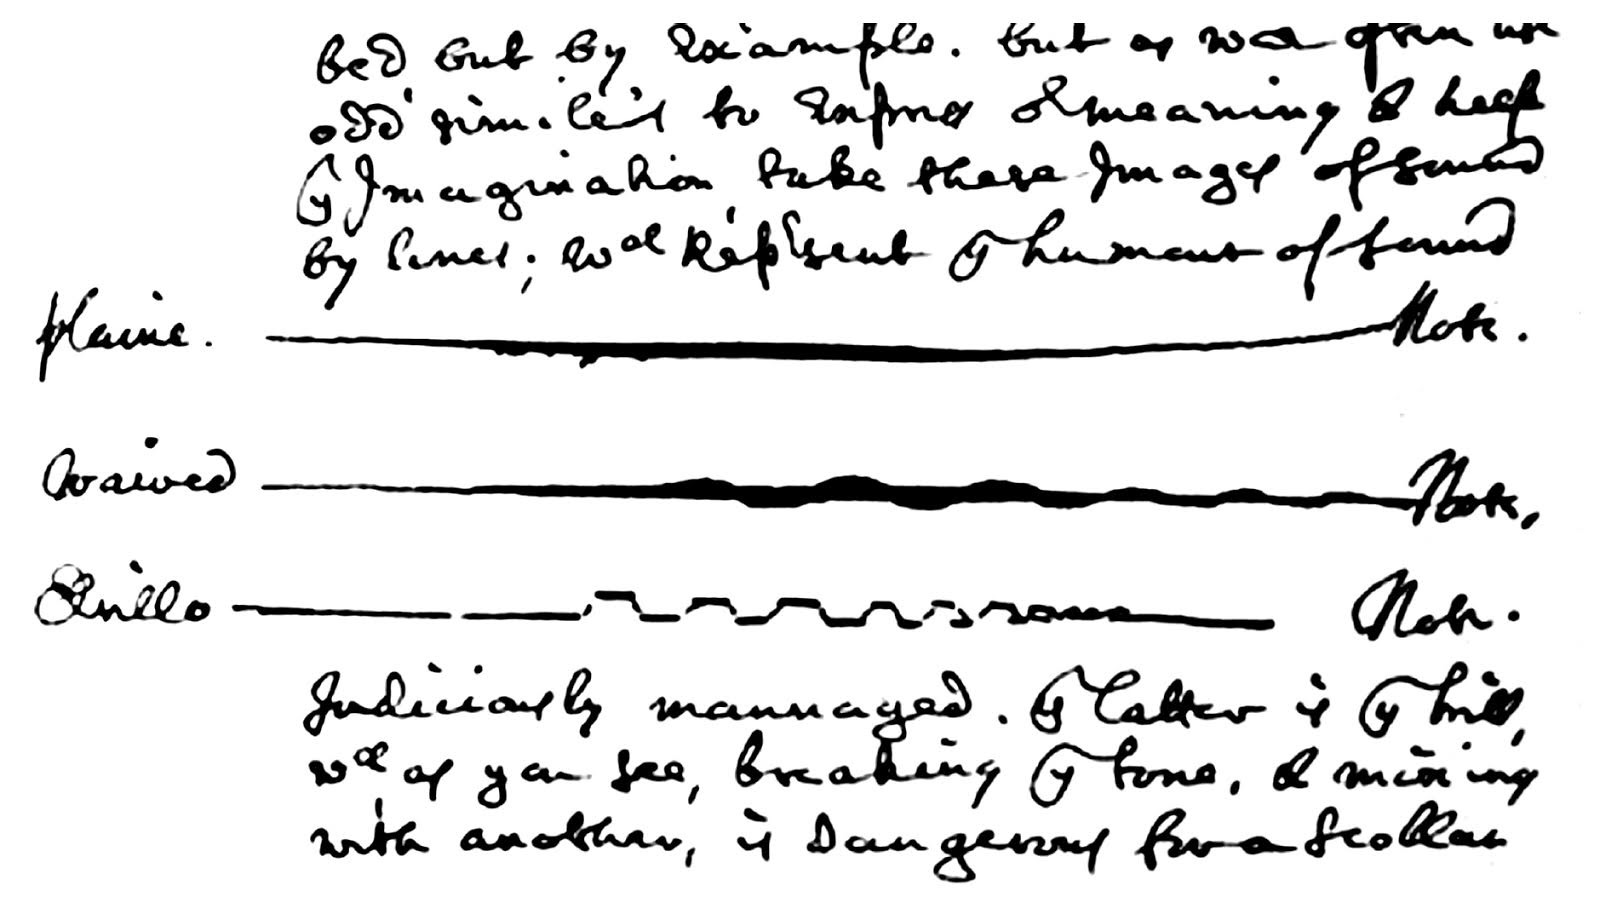 bed but by Example. but as wee often use
odd simile's to Express oʳ meaning & help
yᵉ Imagination, take these Images of sound
by lines; wᶜʰ Represent yᵉ humour of sound
plaine. Note.
Waived Note,
Trillo Note.
Judiciously mannaged. yᵉ latter is yᵉ trill,
wᶜʰ as you see, breaking yᵉ tone, & mixing
with another, is Dangerous for a Scollar